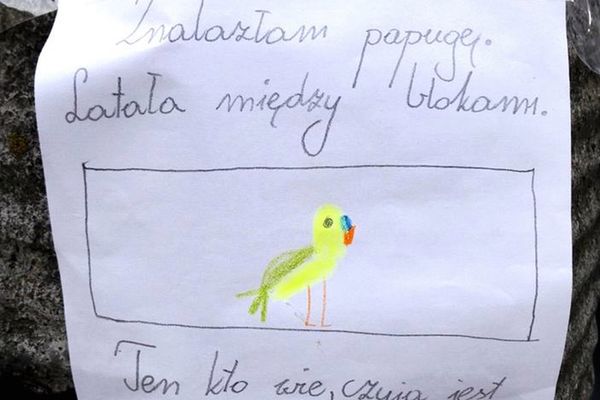 Znalazłam papugę.
Latała między blokami.
Ten kto wie, czyja jest